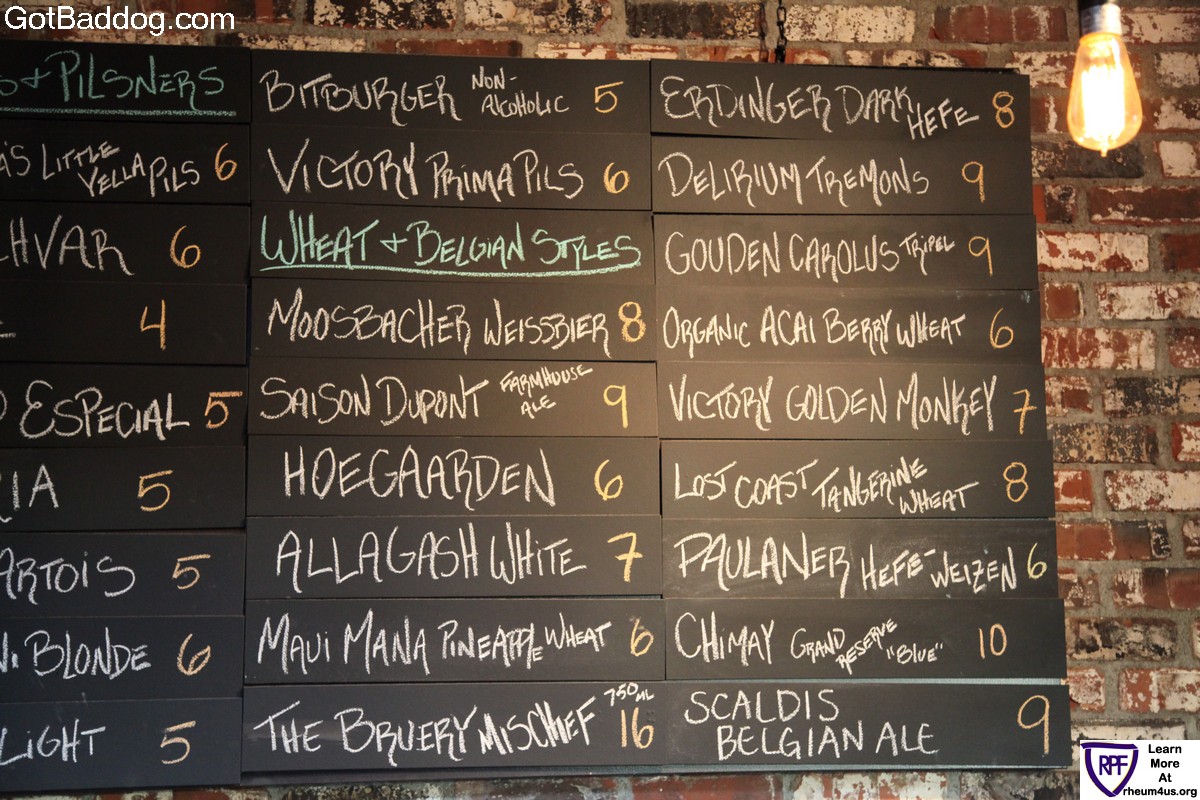 GotBaddog.com
S + PILSNERS
A'S LITTLE YELLA PILS 6
HVAR 6
4
ESPECIAL 5
IA 5
ARTOIS 5
I BLONDE 6
LIGHT 5
BITBURGER NON-ALCOHOLIC 5
VICTORY PRIMA PILS 6
WHEAT + BELGIAN STYLES
MOOSBACHER WEISSBIER 8
SAISON DUPONT FARMHOUSE ALE 9
HOEGAARDEN 6
ALLAGASH WHITE 7
MAUI MANA PINEAPPLE WHEAT 6
THE BRUERY MISCHIEF 750 ML 16
ERDINGER DARK HEFE 8
DELIRIUM TREMONS 9
GOUDEN CAROLUS TRIPEL 9
ORGANIC ACAI BERRY WHEAT 6
VICTORY GOLDEN MONKEY 7
LOST COAST TANGERINE WHEAT 8
PAULANER HEFE-WEIZEN 6
CHIMAY GRAND RESERVE "BLUE" 10
SCALDIS BELGIAN ALE 9
RPF
Learn
More
At
rheum4us.org